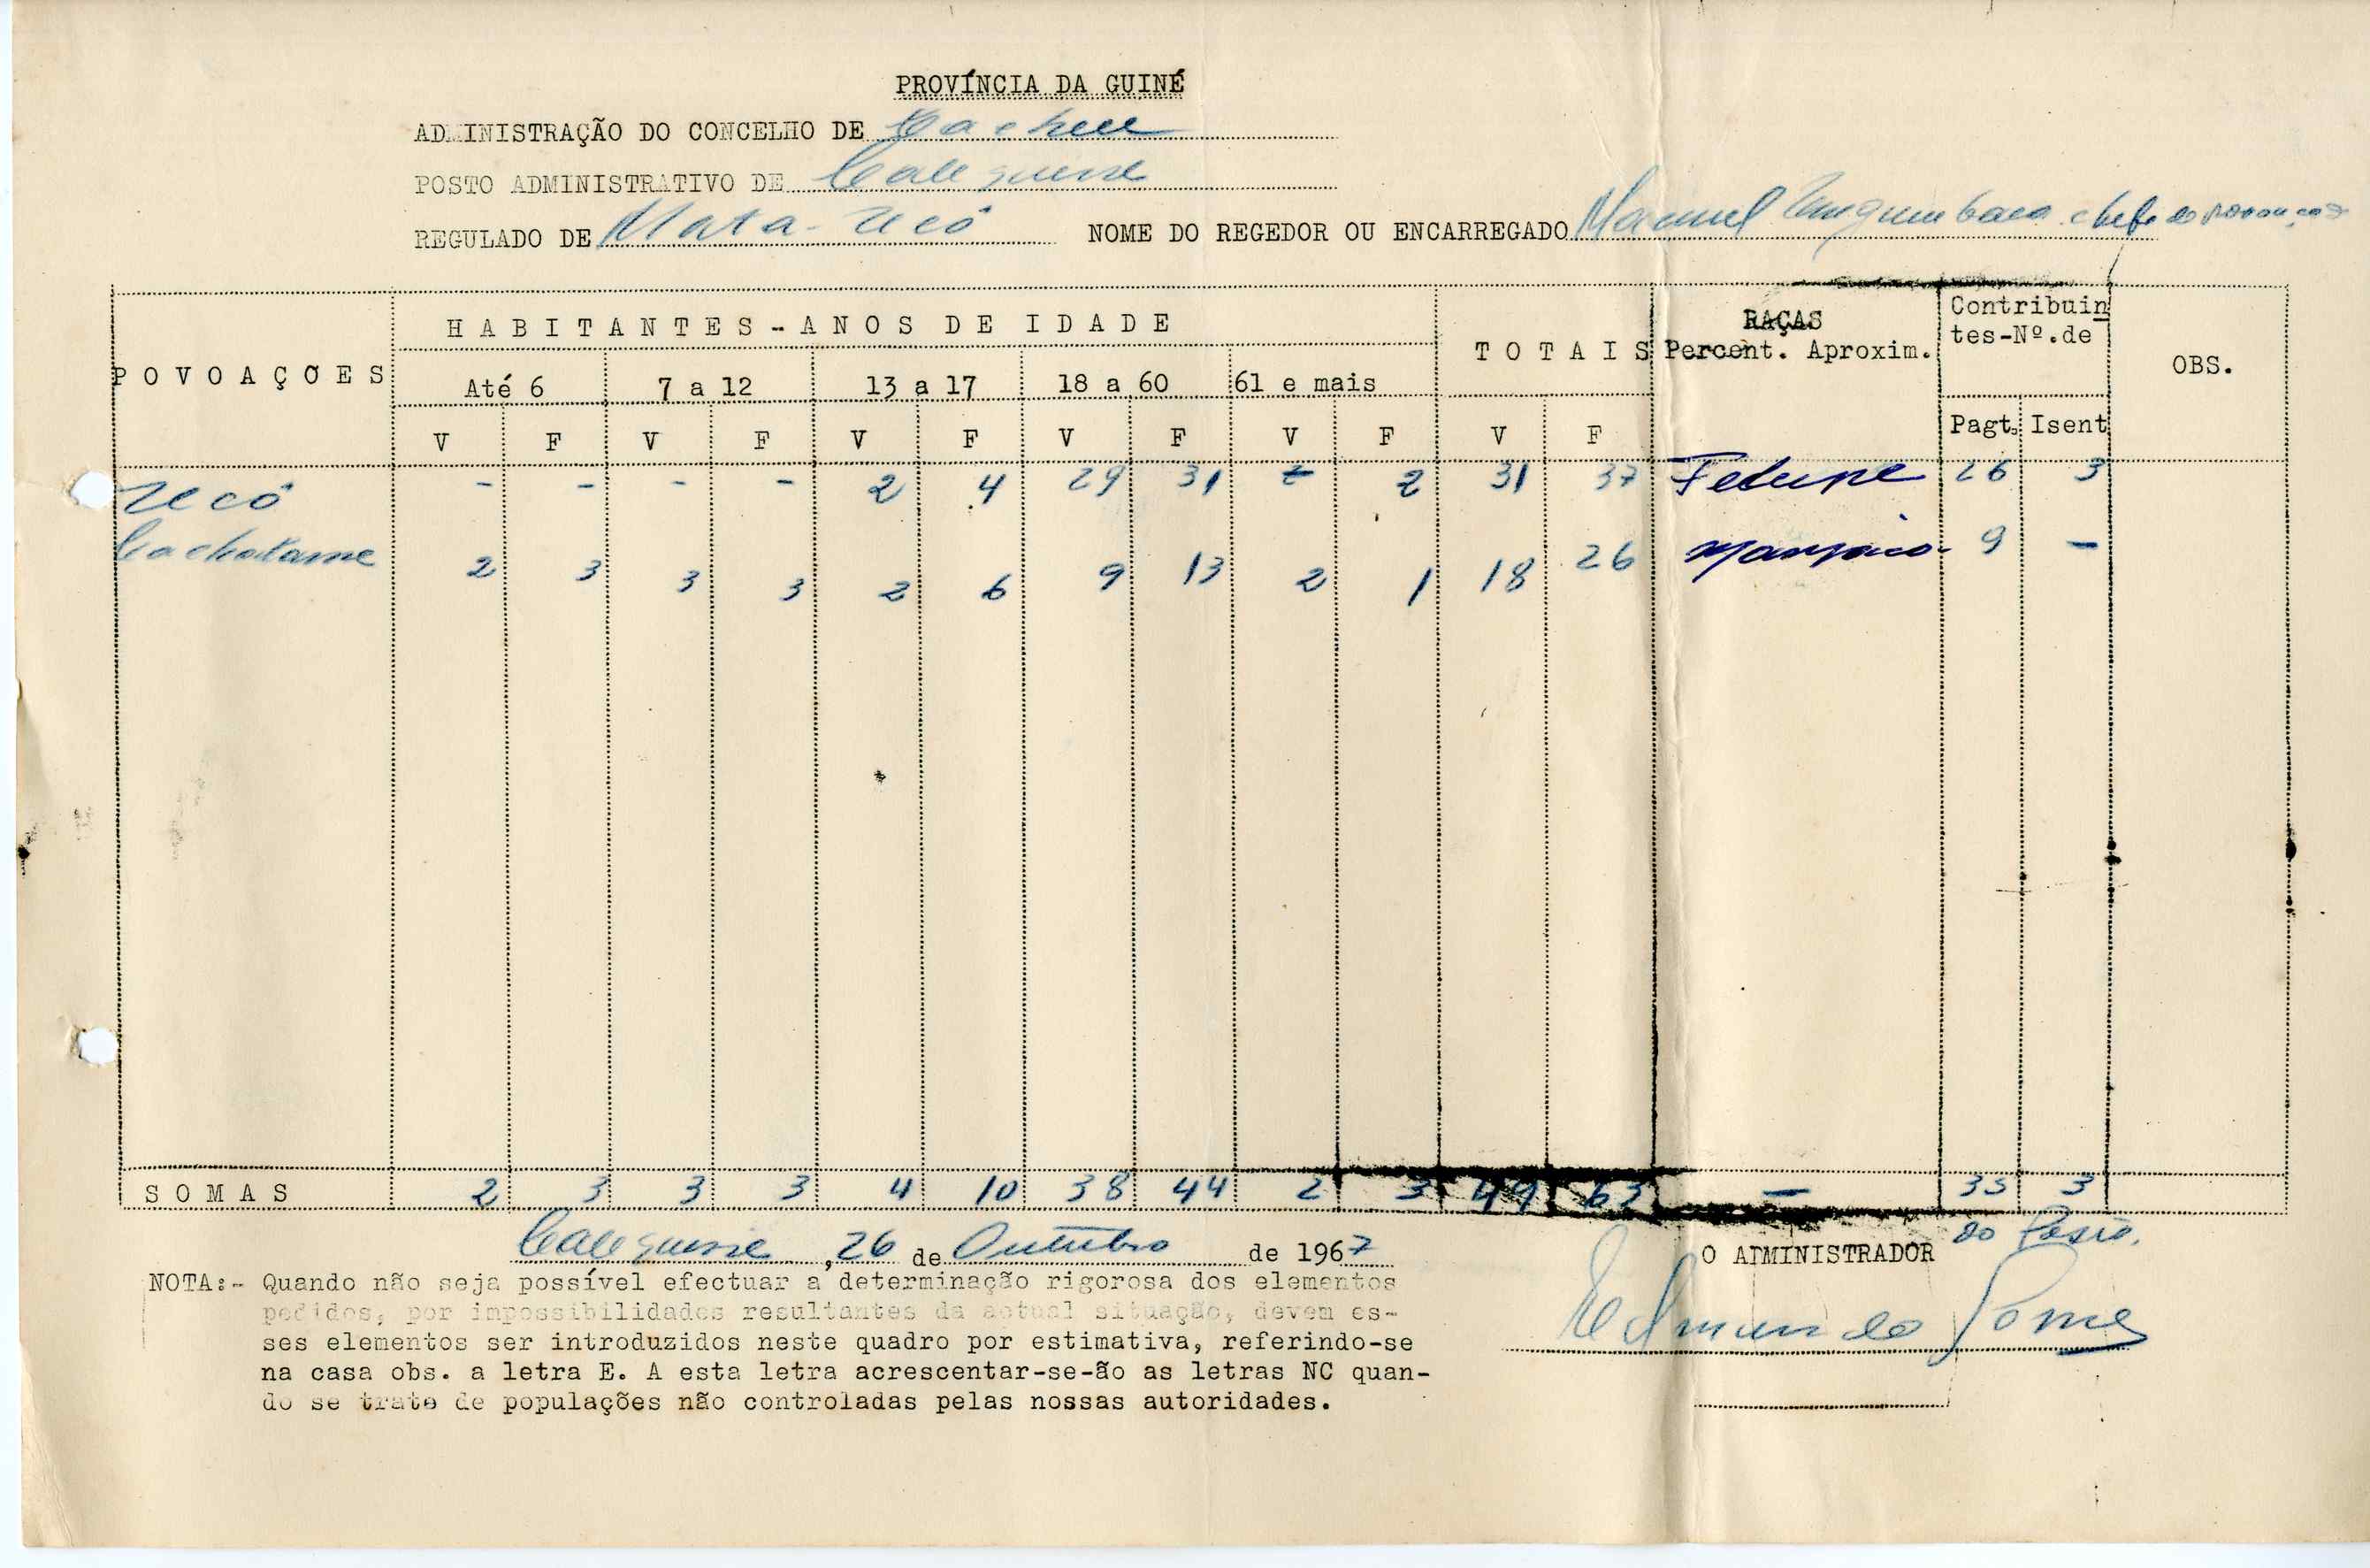 PROVÍNCIA DA GUINÉ
ADMINISTRAÇÃO DO CONCELHO DE Cacheu
POSTO ADMINISTRATIVO DE Calequisse
REGULADO DE Mata-Ucô NOME DO REGEDOR OU ENCARREGADO Manuel chefe da povoação
POVOAÇÕES HABITANTES-ANOS DE IDADE TOTAIS RAÇAS Percent. Aproxim. Contribuintes-Nº.de OBS.
Até 6 7 a 12 13 a 17 18 a 60 61 e mais
V F V F V F V F V F V F Pagt. Isent
Ucô - - - - 2 4 29 31 - 2 31 37 Felupe 26 3
Cachatame 2 3 3 3 2 6 9 13 2 1 18 26 Manjaco 9 -
SOMAS 2 3 3 3 4 10 38 44 2 3 49 63 - 35 3
Calequisse, 26 de Outubro de 1967
O ADMINISTRADOR do Posto.
NOTA:- Quando não seja possível efectuar a determinação rigorosa dos elementos
pedidos, por impossibilidades resultantes da actual situação, devem es-
ses elementos ser introduzidos neste quadro por estimativa, referindo-se
na casa obs. a letra E. A esta letra acrescentar-se-ão as letras NC quan-
do se trate de populações não controladas pelas nossas autoridades.
Edmundo Gomes